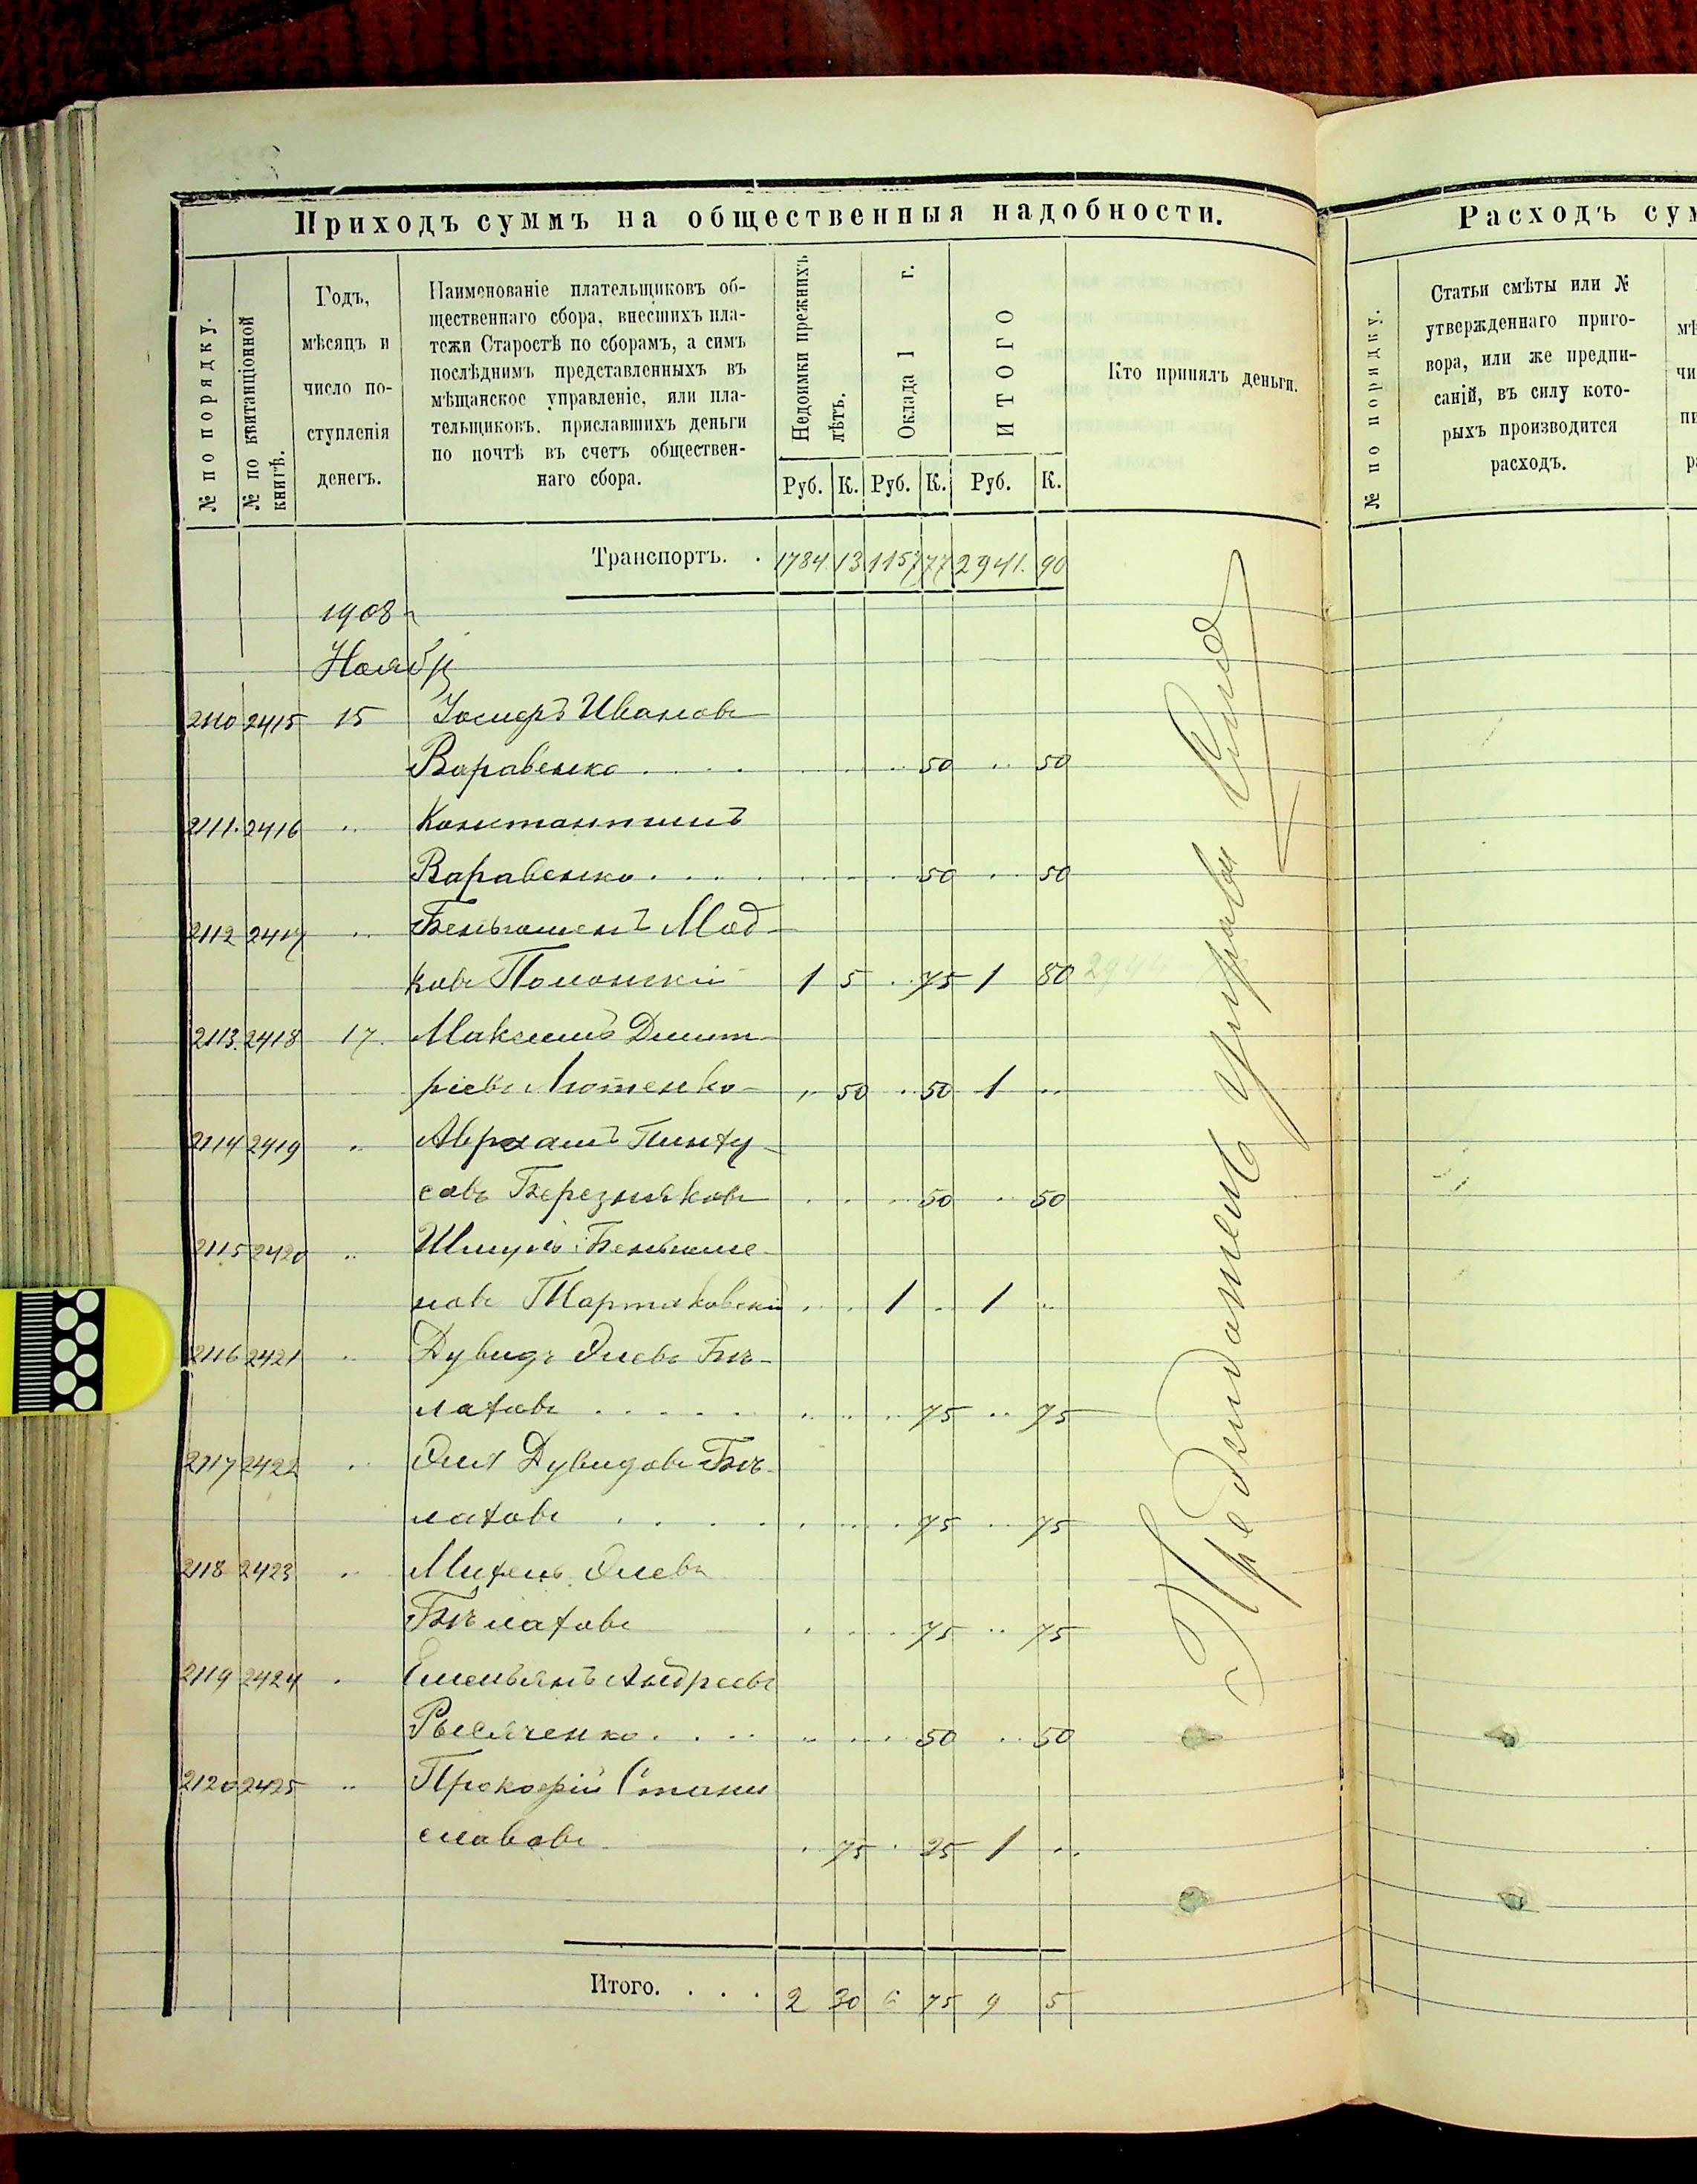 Приходъ суммъ на общественныя надобности.
№ по порядку.
№ по квитанціонной
книгѣ.
Годъ,
мѣсяцъ и
число по-
ступленія
денегъ.
Наименованіе плательщиковъ об-
щественнаго сбора, внесшихъ пла-
тежи Старостѣ по сборамъ, а симъ
послѣднимъ представленныхъ въ
мѣщанское управленіе, или пла-
тельщиковъ, приславшихъ деньги
по почтѣ въ счетъ обществен-
наго сбора.
Недоимки прежнихъ
лѣтъ.
Оклада 1 г.
ИТОГО
Руб. К. Руб. К. Руб. К.
Кто принялъ деньги.
Транспортъ. . 1784. 13 1157 77 2941. 90
1908 г
Ноябр
2110 2415 15 Іосифъ Ивановъ
Варавенко . . . . 50 .. 50
2111. 2416 .. Константинъ
Варавенко . . . . 50 .. 50
2112 2417 .. Беньяменъ Мод-
ковъ 1 5 .. 75 1 80
2113. 2418 17. Максимъ Димит-
ріевъ Лютенко .. 50 .. 50 1 ..
2114 2419 .. Аврхамъ Пинху-
совъ Березняковъ . . . 50 .. 50
2115 2420 .. Шмуль Беньяме-
новъ Тартаковскій .. .. 1 .. 1 ..
2116 2421 .. Дувидъ Элевъ Бѣ-
лаховъ . . . . . .. .. .. 75 .. 75
2117 2422 .. Эля Дувидовъ Бѣ-
лаховъ . . . . . . . 75 .. 75
2118 2423 .. Михель Элевъ
Бѣлаховъ . . . . 75 .. 75
2119 2424 . Емельянъ Андреевъ
. . . .. .. .. 50 .. 50
2120 2425 .. Прокофій Стани
славовъ . 75 . 25 1 ..
Итого. . . . 2 30 6 75 9 5
Президатель управы
Расходъ сум
№ по порядку.
Статьи смѣты или №
утвержденнаго приго-
вора, или же предпи-
саній, въ силу кото-
рыхъ производится
расходъ.